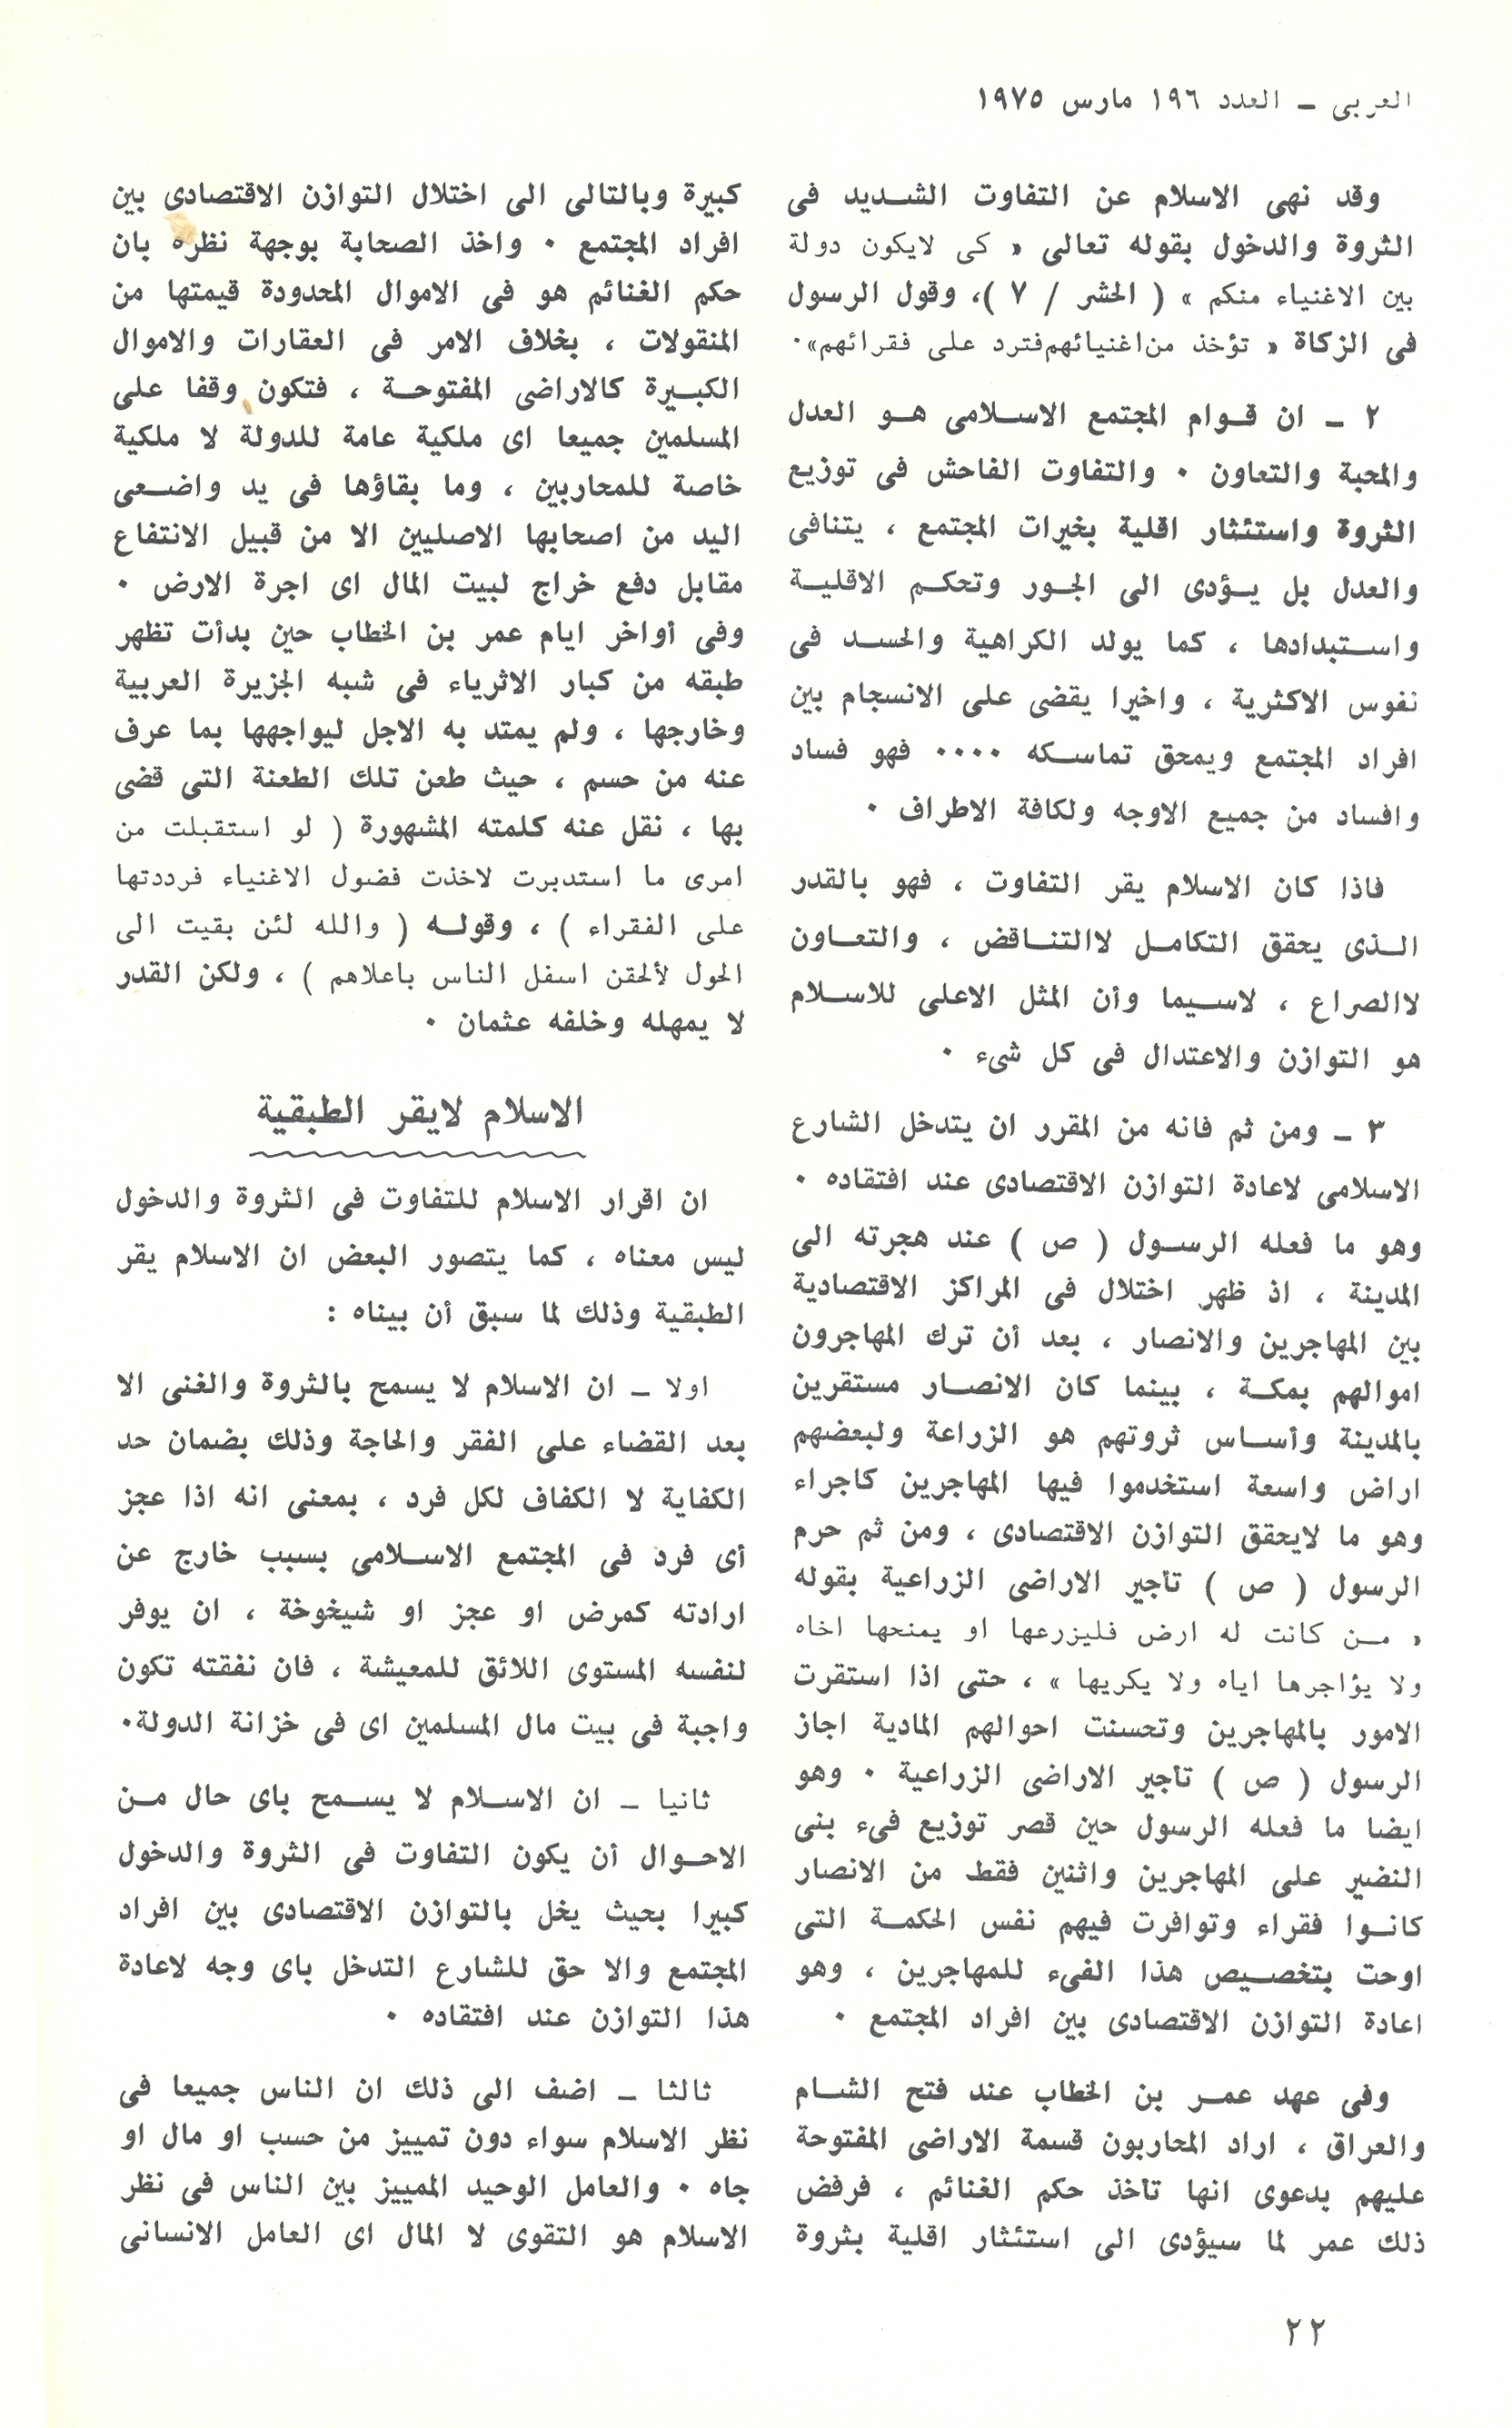 العربى ـ العدد ١٩٦ مارس ١٩٧٥
وقد نهى الاسلام عن التفاوت الشديد فى
الثروة والدخول بقوله تعالى « كى لايكون دولة
بين الاغنياء منكم » ( الحشر / ٧ )، وقول الرسول
فى الزكاة « تؤخذ من اغنيائهم فترد على فقرائهم»٠
٢ ـ ان قوام المجتمع الاسلامى هو العدل
والمحبة والتعاون ٠ والتفاوت الفاحش فى توزيع
الثروة واستئثار اقلية بخيرات المجتمع ، يتنافى
والعدل بل يؤدى الى الجور وتحكم الاقلية
واستبدادها ، كما يولد الكراهية والحسد فى
نفوس الاكثرية ، واخيرا يقضى على الانسجام بين
افراد المجتمع ويمحق تماسكه ٠٠٠٠ فهو فساد
وافساد من جميع الاوجه ولكافة الاطراف ٠
فاذا كان الاسلام يقر التفاوت ، فهو بالقدر
الذى يحقق التكامل لاالتناقض ، والتعاون
لاالصراع ، لاسيما وأن المثل الاعلى للاسلام
هو التوازن والاعتدال فى كل شىء ٠
٣ ـ ومن ثم فانه من المقرر ان يتدخل الشارع
الاسلامى لاعادة التوازن الاقتصادى عند افتقاده ٠
وهو ما فعله الرسول ( ص ) عند هجرته الى
المدينة ، اذ ظهر اختلال فى المراكز الاقتصادية
بين المهاجرين والانصار ، بعد أن ترك المهاجرون
اموالهم بمكة ، بينما كان الانصار مستقرين
بالمدينة وأساس ثروتهم هو الزراعة ولبعضهم
اراض واسعة استخدموا فيها المهاجرين كاجراء
وهو ما لايحقق التوازن الاقتصادى ، ومن ثم حرم
الرسول ( ص ) تأجير الاراضى الزراعية بقوله
« من كانت له ارض فليزرعها او يمنحها اخاه
ولا يؤاجرها اياه ولا يكريها » ، حتى اذا استقرت
الامور بالمهاجرين وتحسنت احوالهم المادية اجاز
الرسول ( ص ) تأجير الاراضى الزراعية ٠ وهو
ايضا ما فعله الرسول حين قصر توزيع فىء بنى
النضير على المهاجرين واثنين فقط من الانصار
كانوا فقراء وتوافرت فيهم نفس الحكمة التى
اوحت بتخصيص هذا الفىء للمهاجرين ، وهو
اعادة التوازن الاقتصادى بين افراد المجتمع ٠
وفى عهد عمر بن الخطاب عند فتح الشام
والعراق ، اراد المحاربون قسمة الاراضى المفتوحة
عليهم بدعوى انها تأخذ حكم الغنائم ، فرفض
ذلك عمر لما سيؤدى الى استئثار اقلية بثروة
كبيرة وبالتالى الى اختلال التوازن الاقتصادى بين
افراد المجتمع ٠ واخذ الصحابة بوجهة نظره بان
حكم الغنائم هو فى الاموال المحدودة قيمتها من
المنقولات ، بخلاف الامر فى العقارات والاموال
الكبيرة كالاراضى المفتوحة ، فتكون وقفا على
المسلمين جميعا اى ملكية عامة للدولة لا ملكية
خاصة للمحاربين ، وما بقاؤها فى يد واضعى
اليد من اصحابها الاصليين الا من قبيل الانتفاع
مقابل دفع خراج لبيت المال اى اجرة الارض ٠
وفى أواخر ايام عمر بن الخطاب حين بدأت تظهر
طبقه من كبار الاثرياء فى شبه الجزيرة العربية
وخارجها ، ولم يمتد به الاجل ليواجهها بما عرف
عنه من حسم ، حيث طعن تلك الطعنة التى قضى
بها ، نقل عنه كلمته المشهورة ( لو استقبلت من
امرى ما استدبرت لاخذت فضول الاغنياء فرددتها
على الفقراء ) ، وقوله ( والله لئن بقيت الى
الحول لألحقن اسفل الناس باعلاهم ) ، ولكن القدر
لا يمهله وخلفه عثمان ٠
الاسلام لايقر الطبقية
ان اقرار الاسلام للتفاوت فى الثروة والدخول
ليس معناه ، كما يتصور البعض ان الاسلام يقر
الطبقية وذلك لما سبق أن بيناه :
اولا ـ ان الاسلام لا يسمح بالثروة والغنى الا
بعد القضاء على الفقر والحاجة وذلك بضمان حد
الكفاية لا الكفاف لكل فرد ، بمعنى انه اذا عجز
أى فرد فى المجتمع الاسلامى بسبب خارج عن
ارادته كمرض او عجز او شيخوخة ، ان يوفر
لنفسه المستوى اللائق للمعيشة ، فان نفقته تكون
واجبة فى بيت مال المسلمين اى فى خزانة الدولة٠
ثانيا ـ ان الاسلام لا يسمح باى حال من
الاحوال أن يكون التفاوت فى الثروة والدخول
كبيرا بحيث يخل بالتوازن الاقتصادى بين افراد
المجتمع والا حق للشارع التدخل باى وجه لاعادة
هذا التوازن عند افتقاده ٠
ثالثا ـ اضف الى ذلك ان الناس جميعا فى
نظر الاسلام سواء دون تمييز من حسب او مال او
جاه ٠ والعامل الوحيد المميز بين الناس فى نظر
الاسلام هو التقوى لا المال اى العامل الانسانى
٢٢